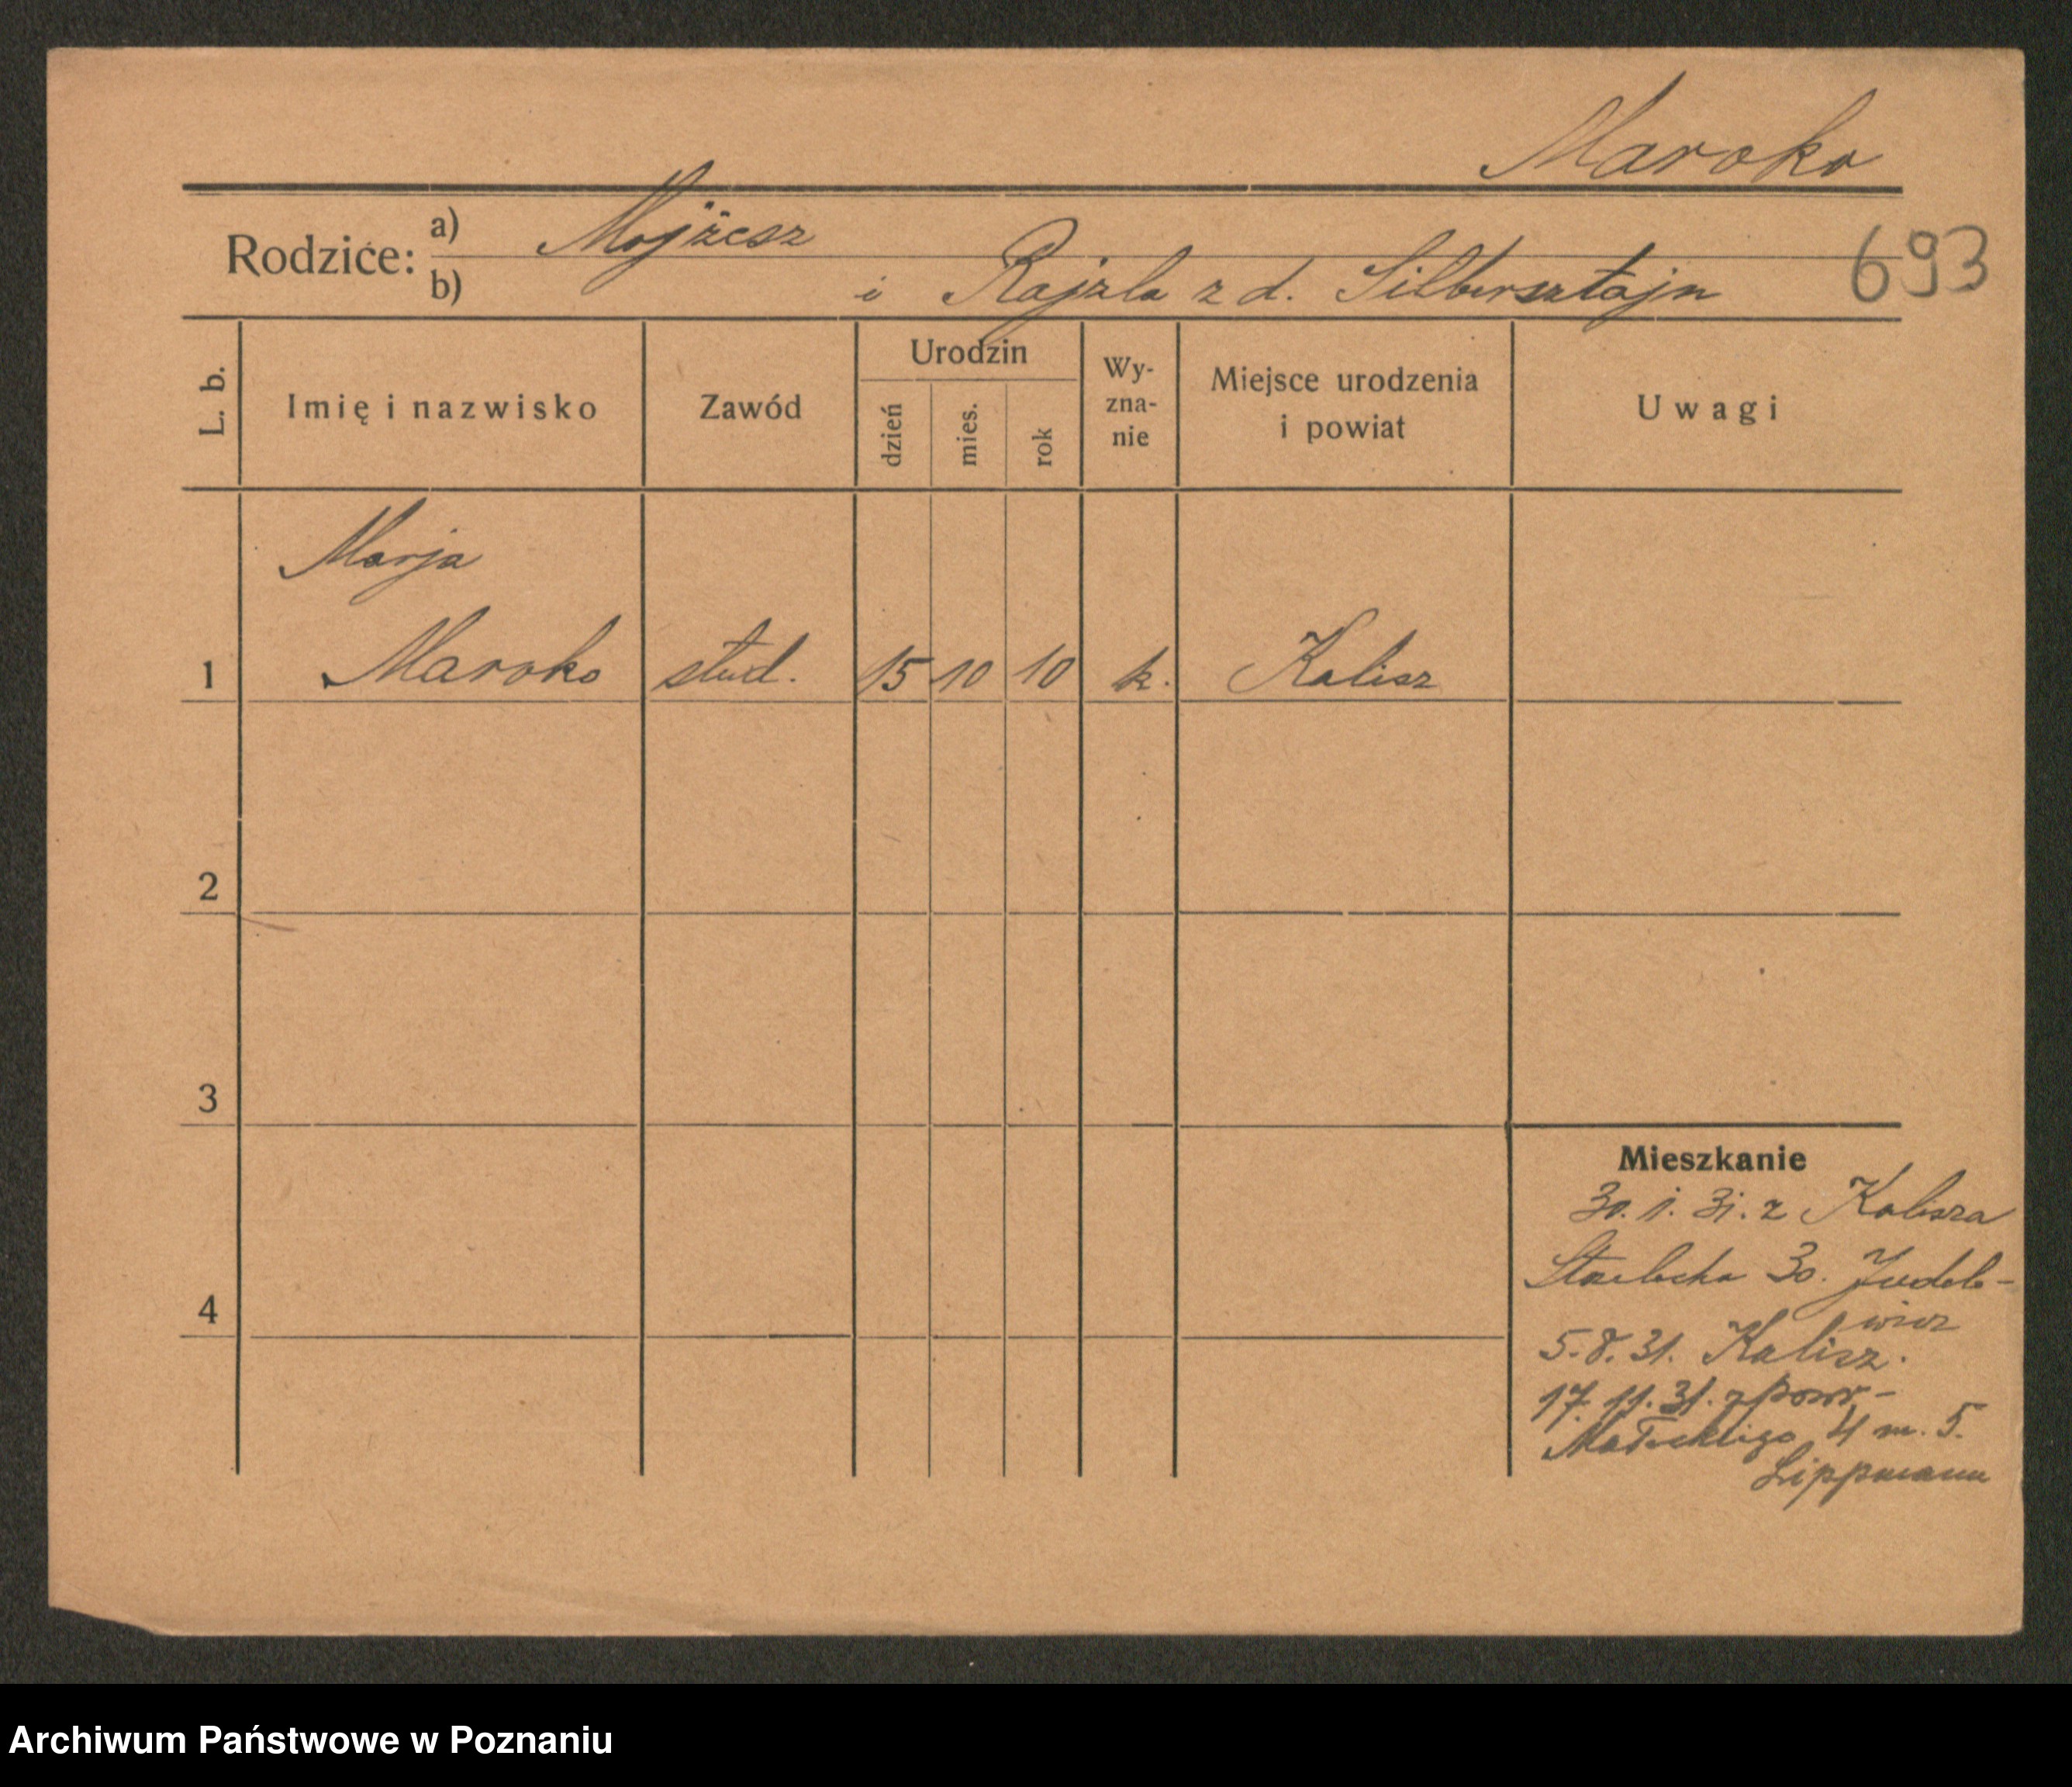 Maroko
Rodzice: a) Mojżesz
b) i Rajzla z d. Silbersztajn
693
L. b.
Imię i nazwisko
Zawód
Urodzin
dzień
mies.
rok
Wy-
zna-
nie
Miejsce urodzenia
i powiat
Uwagi
Marja
1 Maroko stud. 15 10 10 k. Kalisz
2
3
4
Mieszkanie
30. 1. 31. z Kalisza
Strzelecka 30. Judele-
wicz
5. 8. 31. Kalisz.
17. 11. 31. z powr-
Małeckiego 4 m. 5.
Lippmann
Archiwum Państwowe w Poznaniu